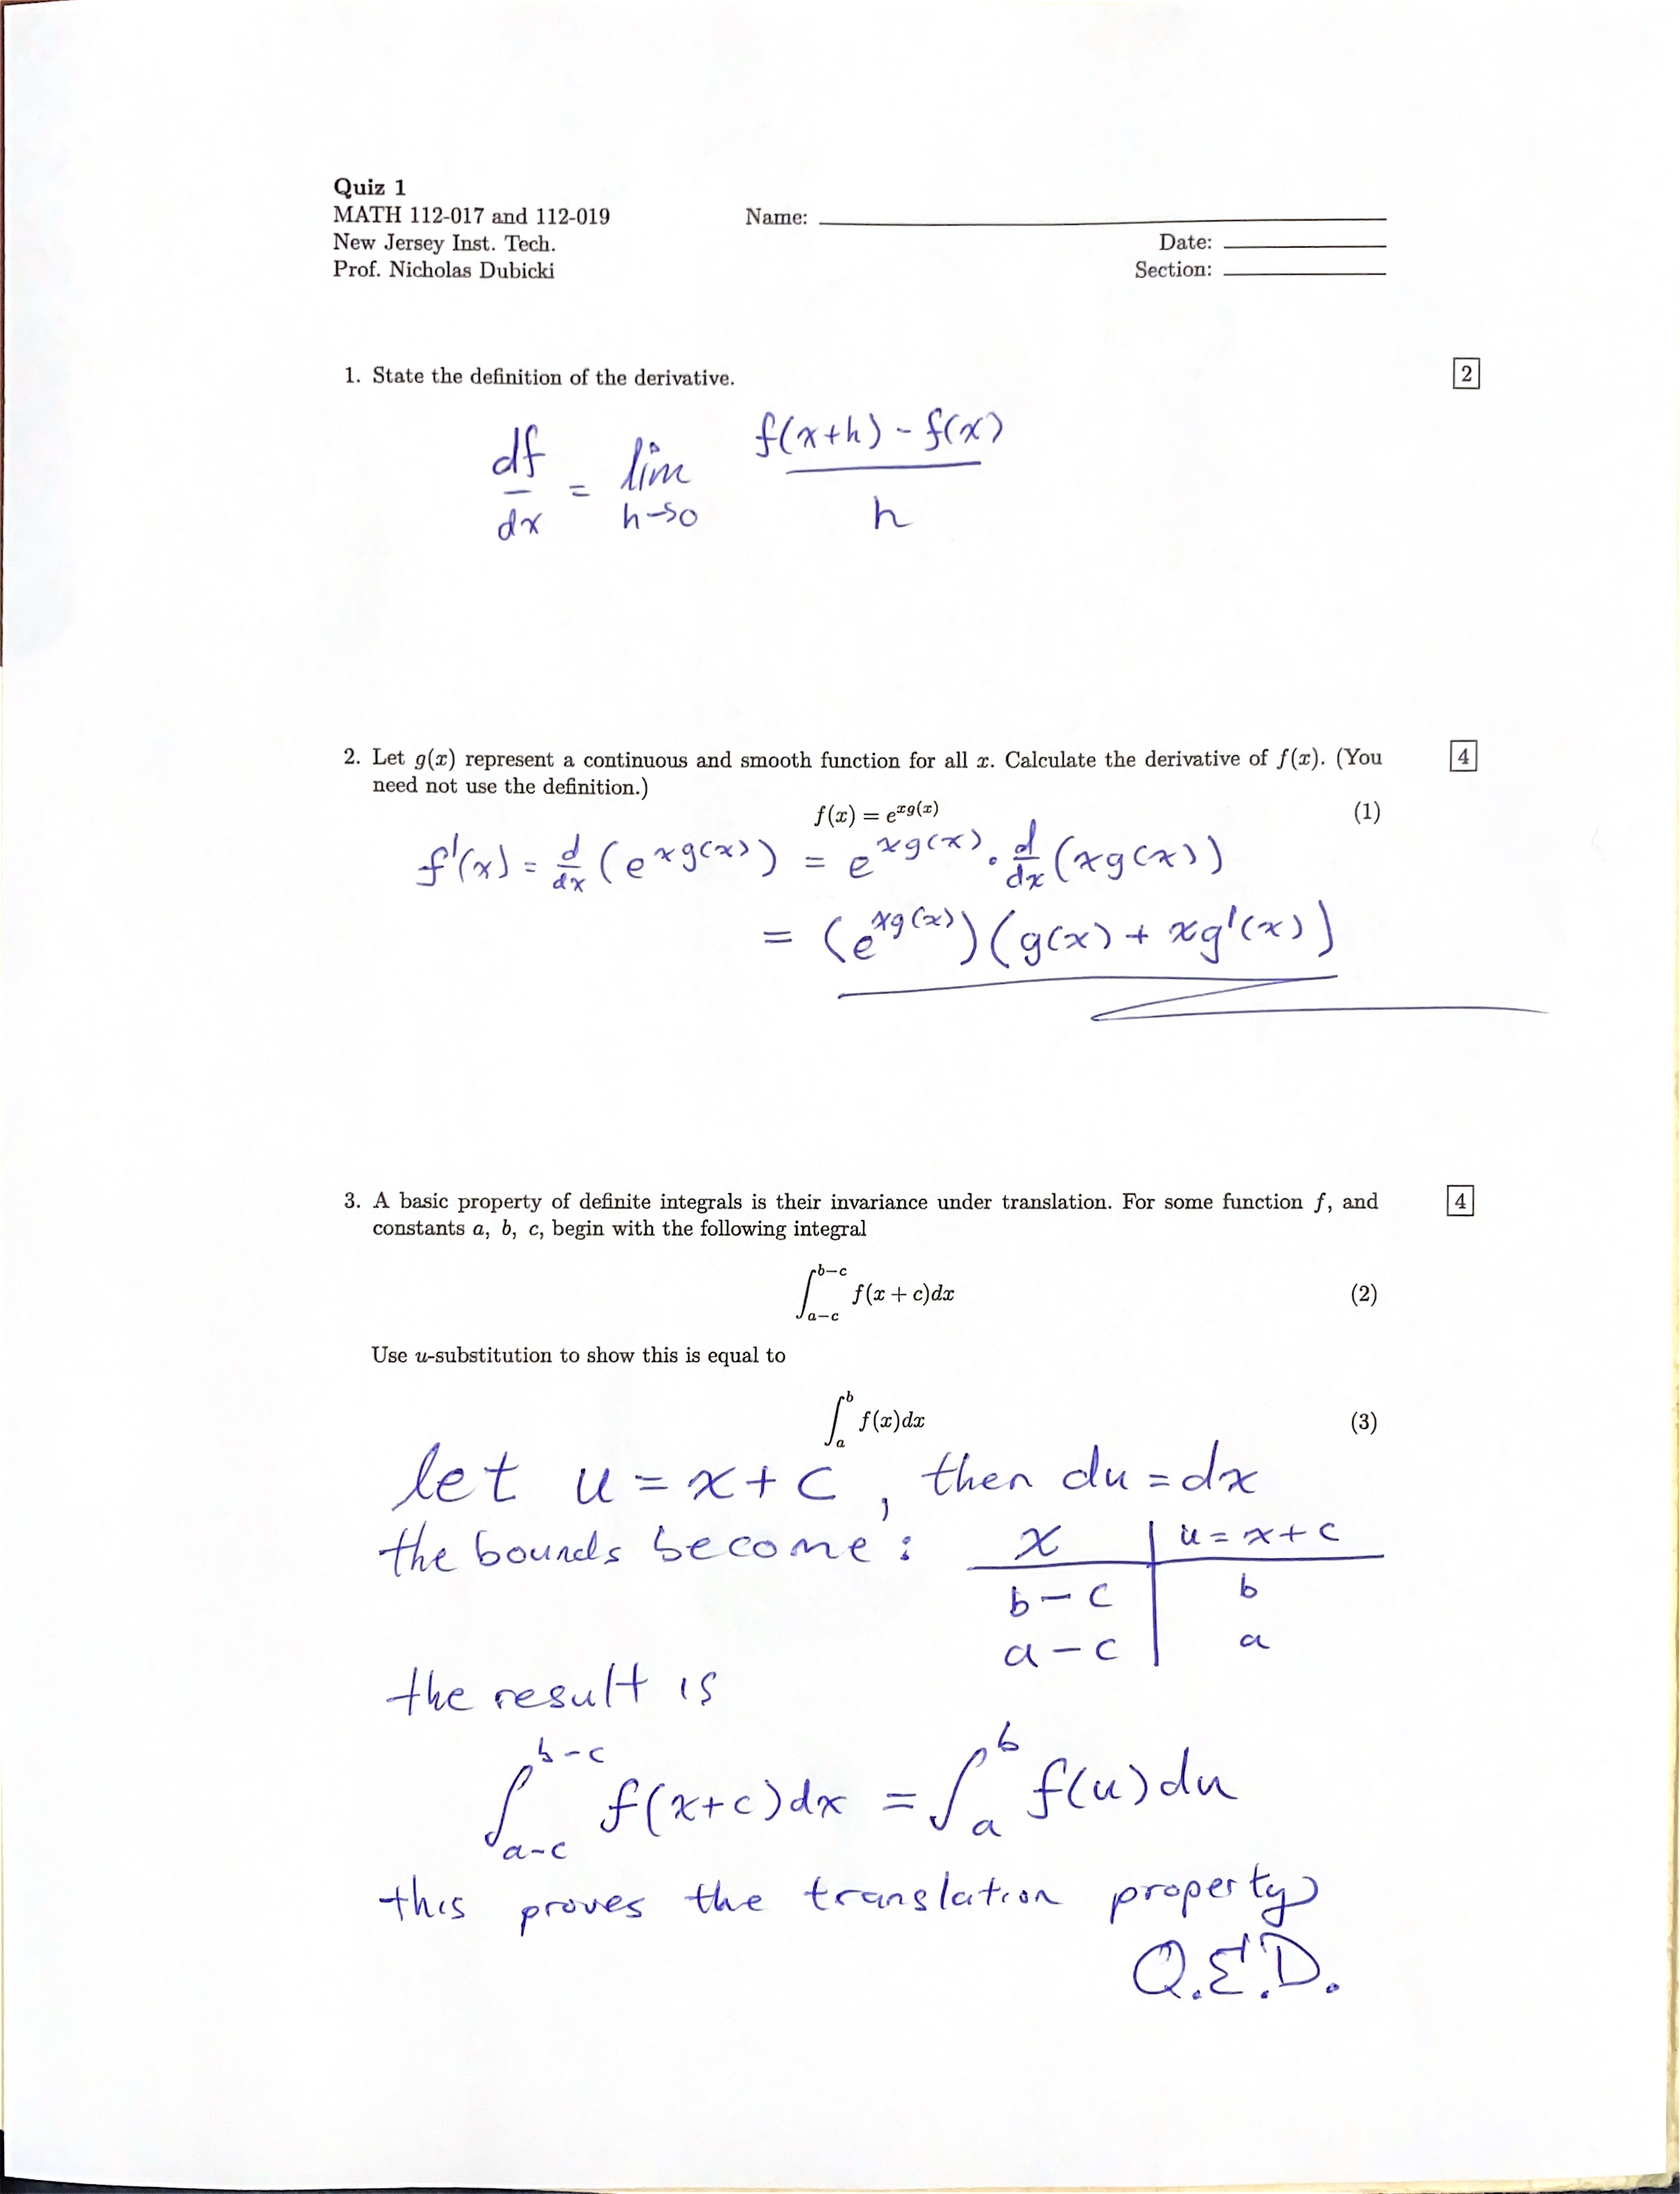 Quiz 1
MATH 112-017 and 112-019 Name:
New Jersey Inst. Tech. Date:
Prof. Nicholas Dubicki Section:
1. State the definition of the derivative. 2
df/dx = lim h→0 (f(x+h) - f(x))/h
2. Let g(x) represent a continuous and smooth function for all x. Calculate the derivative of f(x). (You 4
need not use the definition.)
f(x) = e^{xg(x)} (1)
f'(x) = d/dx (e^{xg(x)}) = e^{xg(x)} · d/dx (xg(x))
= (e^{xg(x)}) (g(x) + xg'(x))
3. A basic property of definite integrals is their invariance under translation. For some function f, and 4
constants a, b, c, begin with the following integral
∫_{a−c}^{b−c} f(x + c)dx (2)
Use u-substitution to show this is equal to
∫_a^b f(x)dx (3)
let u = x + c, then du = dx
the bounds become: x | u = x + c
b − c | b
a − c | a
the result is
∫_{a-c}^{b-c} f(x+c)dx = ∫_a^b f(u)du
this proves the translation property
Q.E.D.